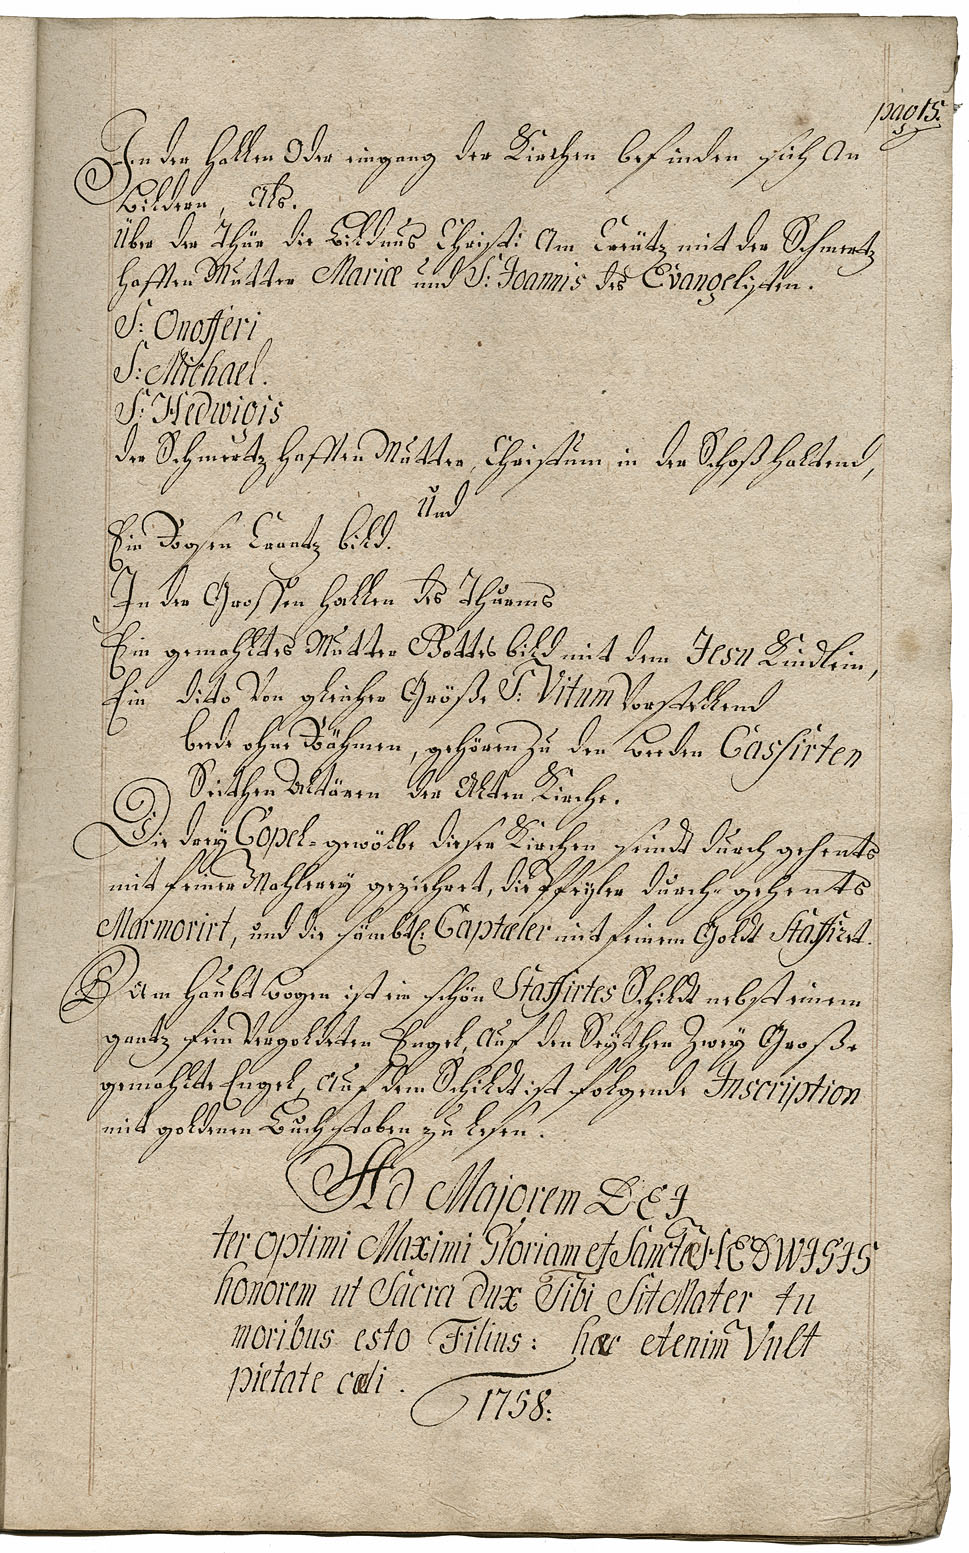 pag 15.
In der Hallen Oder eingang der Kirchen befinden sich An
Bildern, Als.
Über der Thür die Bildnus Christi Am Creütz mit der Schmertz
hafften Mutter Mariæ und S: Joannis des Evangelisten.
S: Onofferi
S: Michael.
S: Hedwigis
der Schmertz hafften Mutter, Christum in der Schoß haltend,
Und
Ein Rosen Crantz bild.
In der Grossen Hallen des Thurms
Ein gemahltes Mutter Gottes bild mit dem Jesu Kindlein,
Ein dito Von gleicher Größe S: Vitum Vorstellend
beede ohne Rähmen, gehören zu den beeden Cassirten
Seithen Altären der Alten Kirche.
Die drey Copel-gewölbe dieser Kirchen seindt durch gehents
mit feiner Mahlerey geziehret, die Pfeyler durch-gehents
Marmorirt, und die sambtl: Captæler mit feinem Goldt Staffirt.
Am Haubt bogen ist ein schön Staffirtes Schildt nebst einem
gantz fein Vergoldeten Engel, Auf den Seythen Zwey Große
gemahlte Engel, Auf dem Schildt ist folgende Inscription
mit goldenen Buchstaben zu lesen.
Ad Majorem DEI
ter optimi Maximi Gloriam et Sanctæ HEDWIGIS
honorem ut Sacra dux Tibi Sit Mater tu
moribus esto Filius: hæc etenim Vult
pietate cœli.
1758: